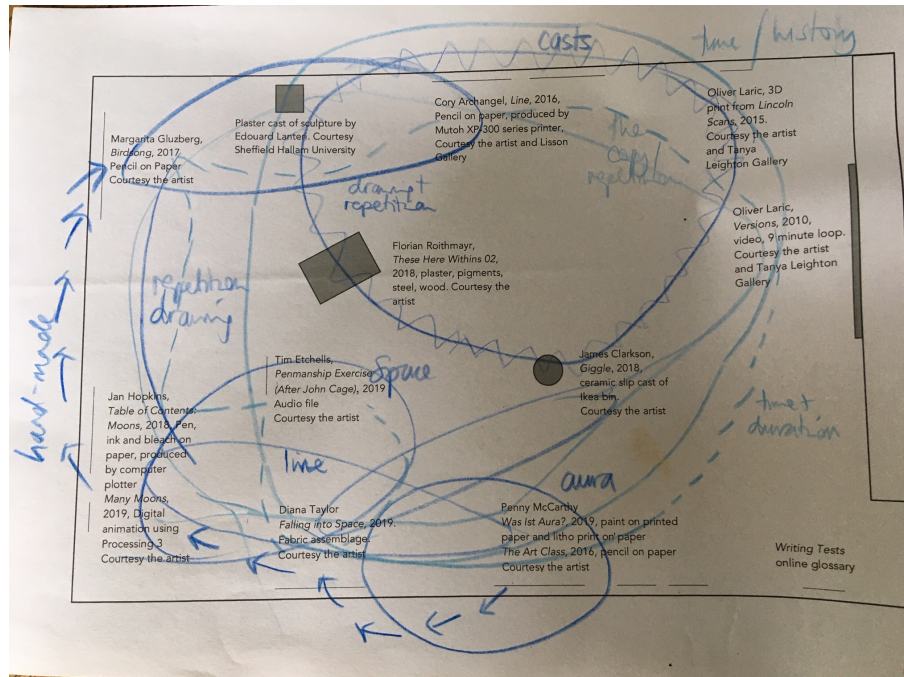 casts
time / history
Margarita Gluzberg,
Birdsong, 2017
Pencil on Paper
Courtesy the artist
Plaster cast of sculpture by
Edouard Lanteri. Courtesy
Sheffield Hallam University
Cory Archangel, Line, 2016,
Pencil on paper, produced by
Mutoh XP-300 series printer,
Courtesy the artist and Lisson
Gallery
Oliver Laric, 3D
print from Lincoln
Scans, 2015.
Courtesy the artist
and Tanya
Leighton Gallery
the
copy/
repetition
drawing +
repetition
Oliver Laric,
Versions, 2010,
video, 9 minute loop.
Courtesy the artist
and Tanya Leighton
Gallery
Florian Roithmayr,
These Here Withins 02,
2018, plaster, pigments,
steel, wood. Courtesy the
artist
repetition
drawing
hand-made
Tim Etchells,
Penmanship Exercise
(After John Cage), 2019
Audio file
Courtesy the artist
Space
James Clarkson,
Giggle, 2018,
ceramic slip cast of
Ikea bin.
Courtesy the artist
Jan Hopkins,
Table of Contents:
Moons, 2018, Pen,
ink and bleach on
paper, produced
by computer
plotter
Many Moons,
2019, Digital
animation using
Processing 3
Courtesy the artist
time +
duration
line
aura
Diana Taylor
Falling into Space, 2019.
Fabric assemblage.
Courtesy the artist
Penny McCarthy
Was Ist Aura?, 2019, paint on printed
paper and litho print on paper
The Art Class, 2016, pencil on paper
Courtesy the artist
Writing Tests
online glossary